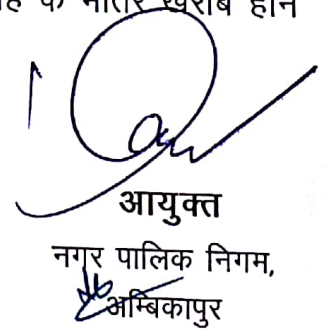 के भीतर खराब होने
आयुक्त
नगर पालिक निगम,
अम्बिकापुर